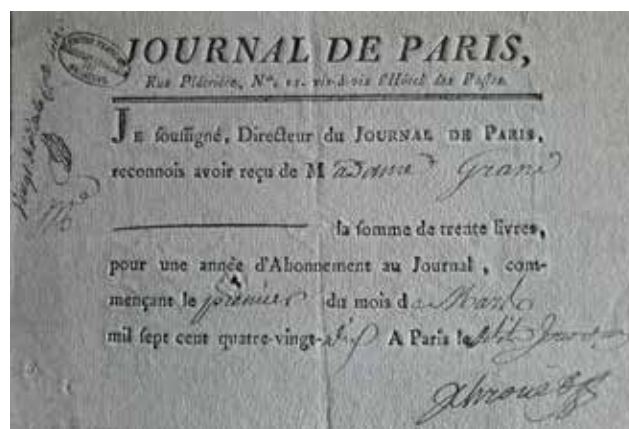 JOURNAL DE PARIS,
Rue Plâtrière, N°. 11. vis-à-vis l'Hôtel des Postes.
JE soussigné, Directeur du JOURNAL DE PARIS,
reconnois avoir reçu de Madame Grand
la somme de trente livres,
pour une année d'Abonnement au Journal, com-
mençant le premier du mois de Mars
mil sept cent quatre-vingt-dix A Paris le